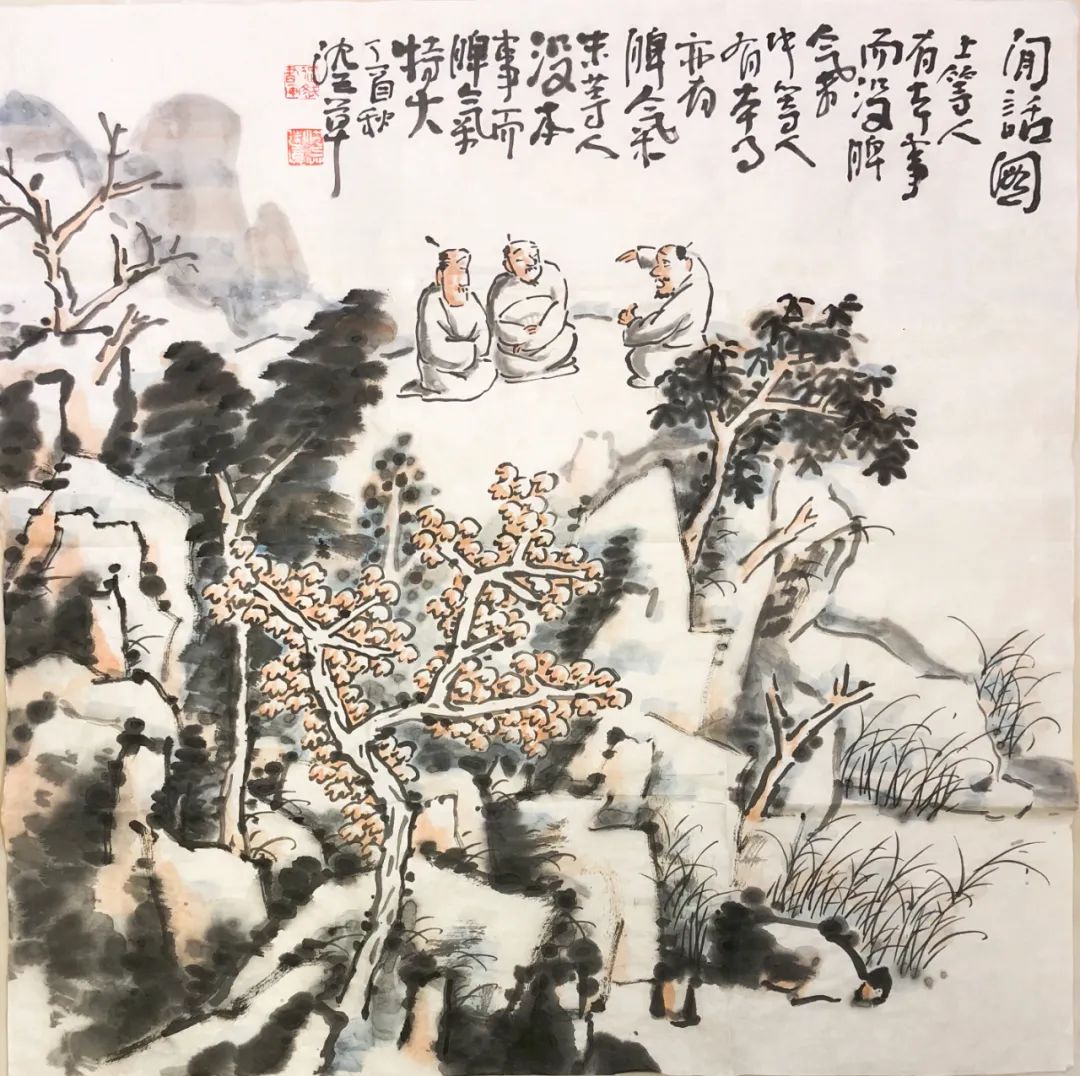 閒話圖
上等人
有本事
而没脾
氣
中等人
有本事
亦有
脾氣
末等人
没本
事而
脾氣
特大
丁酉秋